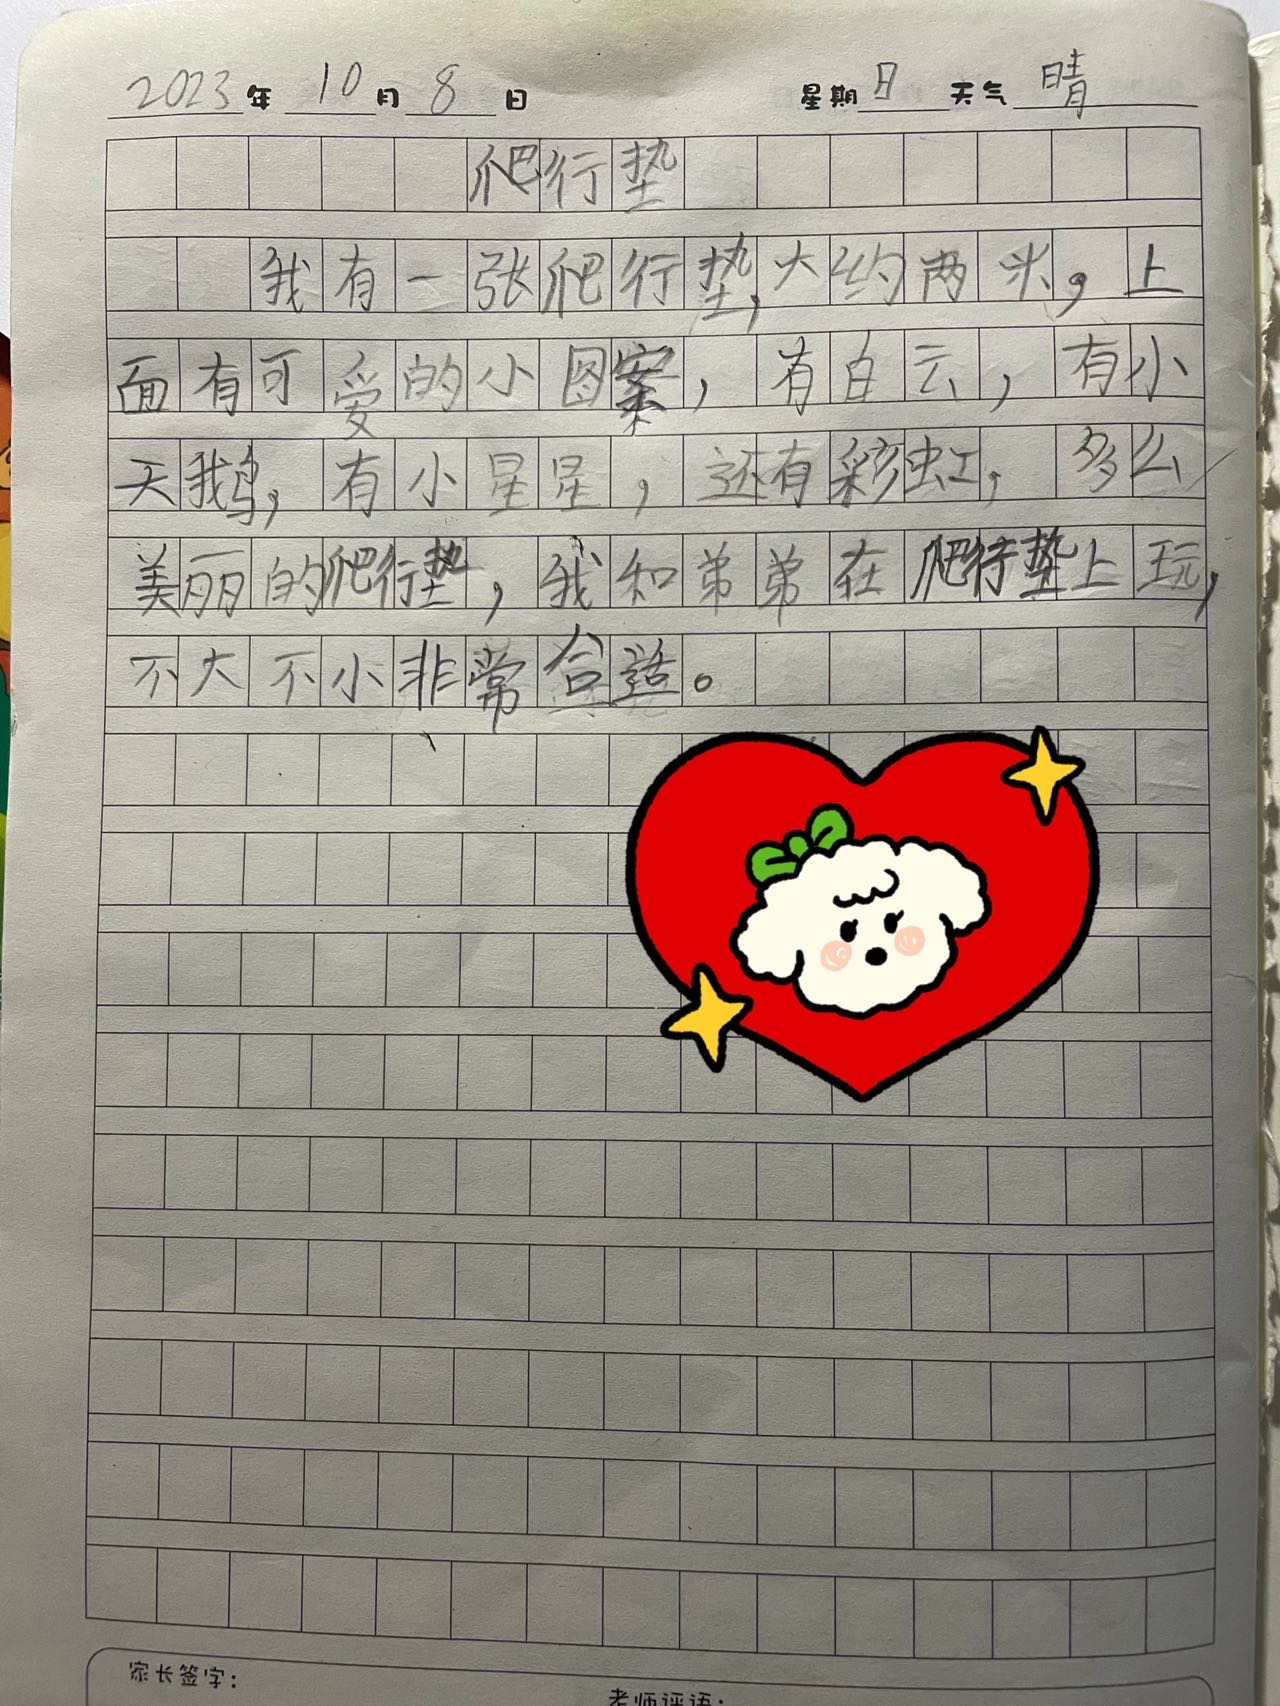 2023年 10月 8日 星期日 天气 晴
爬行垫
我有一张爬行垫,大约两米,上
面有可爱的小图案,有白云,有小
天鹅,有小星星,还有彩虹,多么
美丽的爬行垫,我和弟弟在爬行垫上玩,
不大不小非常合适。
家长签字:
老师评语: